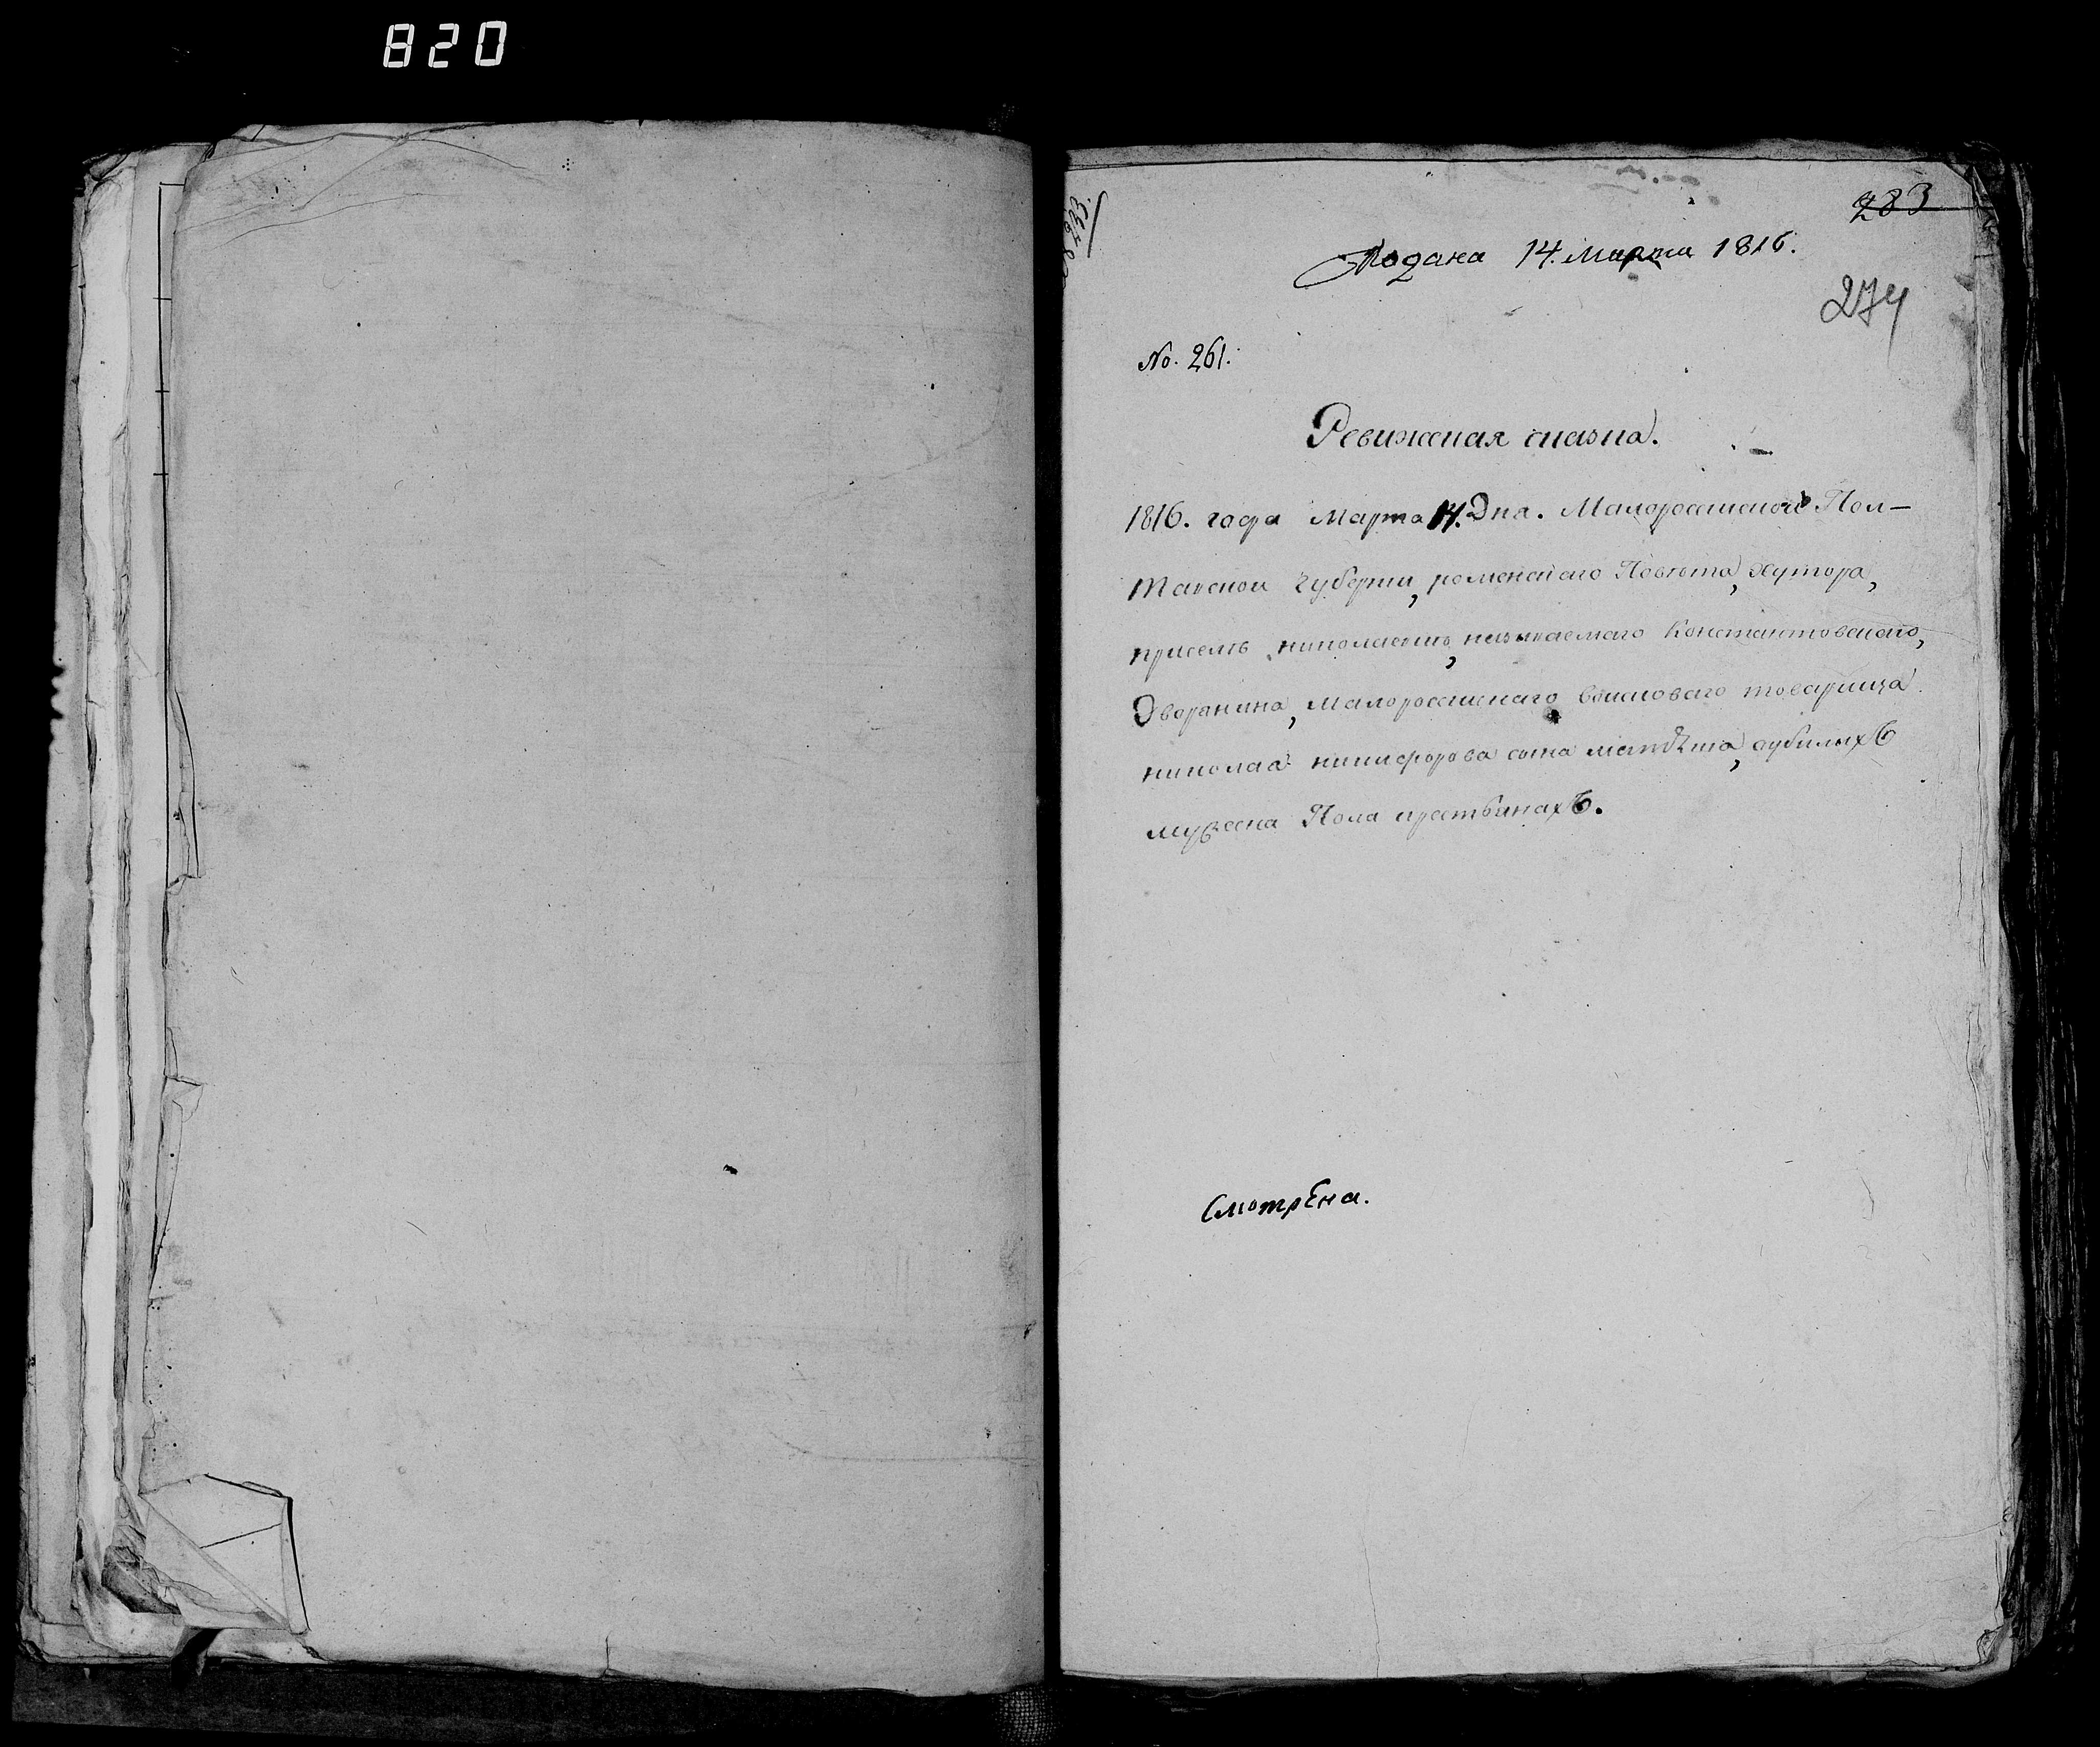 820
283
Подана 14. Марта 1816.
274
No. 261.
Ревижская сказка.
1816. года Марта 14. Дня. Малоросиской Пол-
тавской губернии, роменского Повѣта, хутора,
при селѣ николаевки, называемаго Константовского,
Дворянина, Малороссискаго войскового товарища
николая никифорова сына, обылыхъ
мужеска Пола крестьянахъ.
Смотрена.